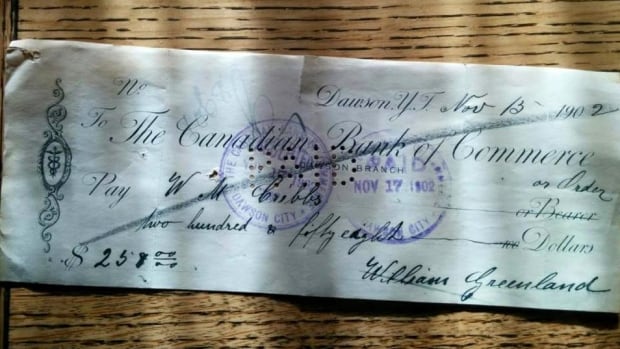 No.
Dawson Y.T. Nov 15 1902
To The Canadian Bank of Commerce
DAWSON BRANCH
PAID
NOV 17 1902
DAWSON CITY
Pay W M Cribbs or Order
or Bearer
two hundred & fifty eight Dollars
$ 258 00/00
William Greenland